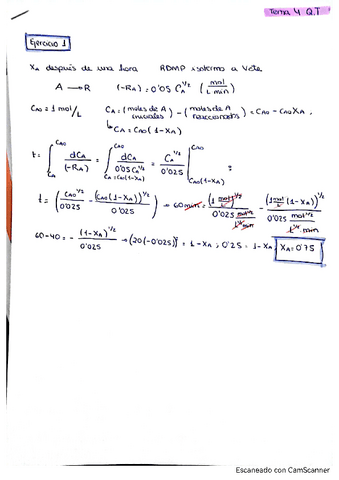 Tema 4 Q.T
Ejercicio 1
XA después de una hora RDMP isotermo a Vcte
A → R (-RA) = 0'05 CA^1/2 (mol / L min)
CA0 = 1 mol/L CA = (moles de A iniciales) - (moles de A reaccionados) = CA0 - CA0XA
↳ CA = CA0(1-XA)
t = ∫ CA0 CA0(1-XA) dCA / (-RA) = ∫ CA0 CA=CA0(1-XA) dCA / 0'05 CA^1/2 = CA^1/2 / 0'025 | CA0 CA0(1-XA) ;
t = (CA0^1/2 / 0'025 - (CA0(1-XA))^1/2 / 0'025) → 60 min = (1 mol/L)^1/2 / 0'025 mol^1/2 / L^1/2 min - (1 mol/L (1-XA))^1/2 / 0'025 mol^1/2 / L^1/2 min
60-40 = - (1-XA)^1/2 / 0'025 → (20(-0'025))^2 = 1-XA ; 0'25 = 1-XA, XA = 0'75
Escaneado con CamScanner